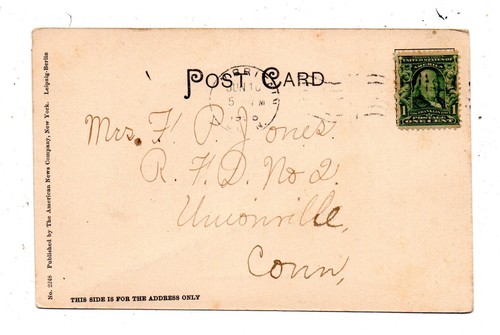 POST CARD
JUN 10
5
UNITED STATES OF AMERICA
POSTAGE
ONE CENT
Mrs F P Jones.
R. F. D. No 2.
Unionville,
Conn,
No. 2248 Published by The American News Company, New York. Leipzig-Berlin
THIS SIDE IS FOR THE ADDRESS ONLY